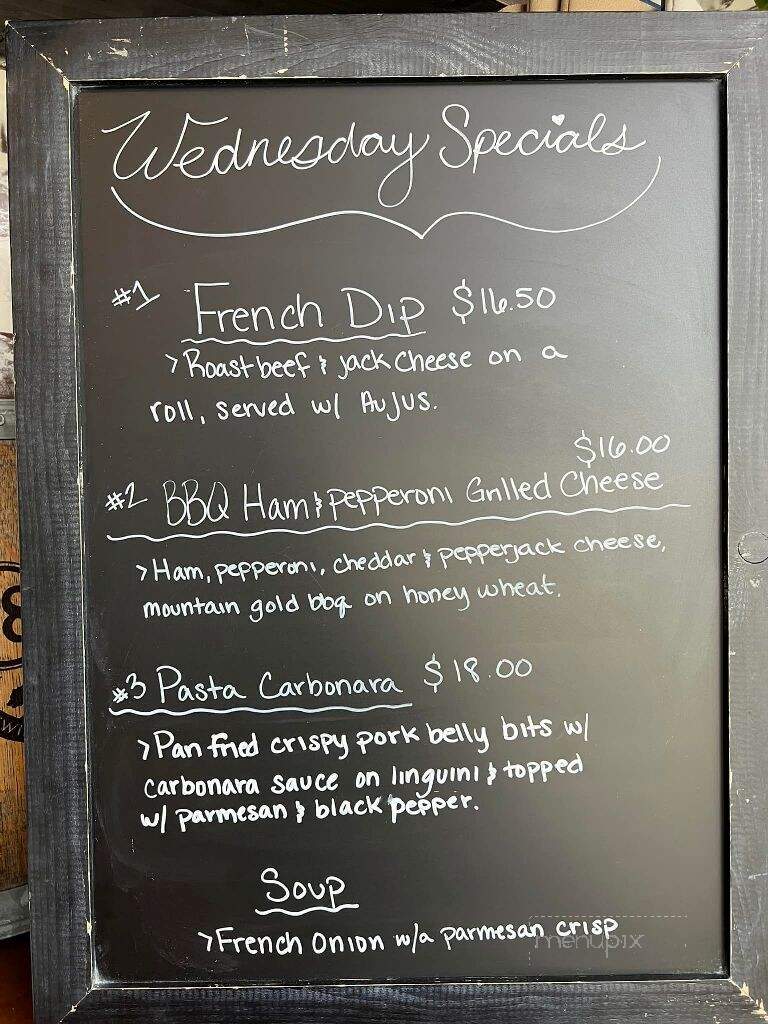 Wednesday Specials
#1 French Dip $16.50
>Roast beef & jack cheese on a
roll, served w/ Au Jus.
$16.00
#2 BBQ Ham & pepperoni Grilled Cheese
>Ham, pepperoni, cheddar & pepperjack cheese,
mountain gold bbq on honey wheat.
#3 Pasta Carbonara $18.00
>Pan fried crispy pork belly bits w/
carbonara sauce on linguini & topped
w/ parmesan & black pepper.
Soup
>French Onion w/a parmesan crisp
menupix